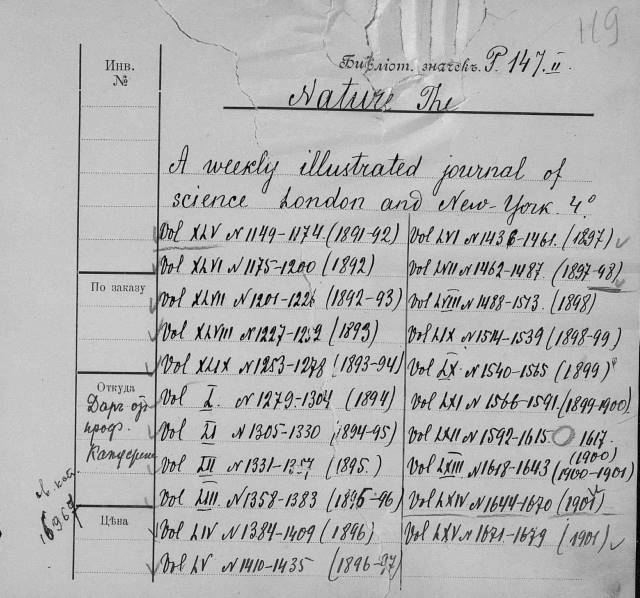 119
Инв.
№
Библіот. значекъ. P. 147. II.
Nature The
A weekly illustrated journal of
science London and New-York. 4°.
Vol XLV N 1149-1174 (1891-92)
Vol XLVI N 1175-1200 (1892)
Vol XLVII N 1201-1226 (1892-93)
Vol XLVIII N 1227-1252 (1893)
Vol XLIX N 1253-1278 (1893-94)
Vol L. N 1279-1304 (1894)
Vol LI N 1305-1330 (1894-95)
Vol LII N 1331-1357 (1895.)
Vol LIII N 1358-1383 (1895-96)
Vol LIV N 1384-1409 (1896)
Vol LV N 1410-1435 (1896-97)
Vol LVI N 1436-1461. (1897)
Vol LVII N 1462-1487. (1897-98)
Vol LVIII N 1488-1513. (1898)
Vol LIX N 1514-1539 (1898-99)
Vol LX. N 1540-1565 (1899)
Vol LXI N 1566-1591. (1899-1900).
Vol LXII N 1592-1615 1617.
(1900)
Vol LXIII N 1618-1643 (1900-1901)
Vol LXIV N 1644-1670 (1901)
Vol LXV N 1671-1679 (1901)
По заказу
Откуда
Даръ отъ
проф.
Цѣна